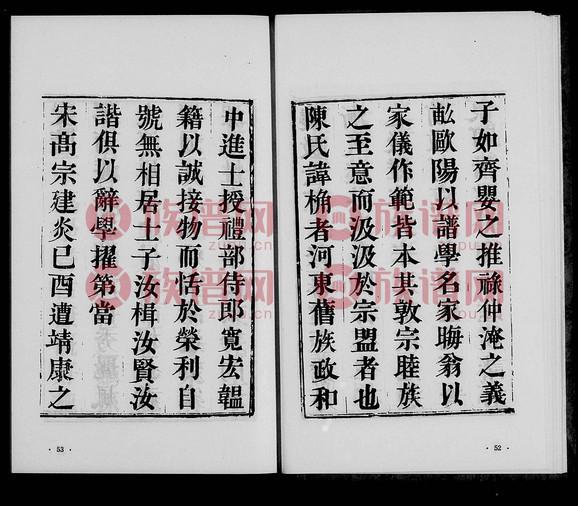 子如齊嬰之推祿仲淹之義
歐陽以譜學名家晦翁以
家儀作範皆本其敦宗睦族
之至意而汲汲於宗盟者也
陳氏諱桷者河東舊族政和
· 52 ·
中進士授禮部侍郎寬宏韞
籍以誠接物而恬於榮利自
號無相居士子汝楫汝賢汝
諧俱以辭學擢第當
宋高宗建炎巳酉遭靖康之
· 53 ·
族谱网
zupu.cn